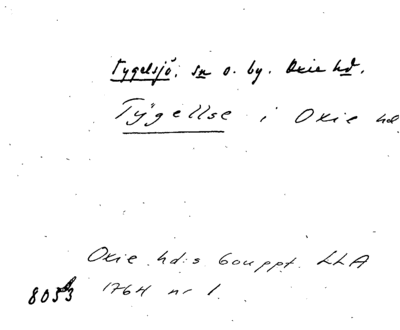 Tygelsjö, sn o. by. Oxie hd.
Tÿgellse i Oxie hd
Oxie hd:s bouppt. LLA
1764 nr 1.